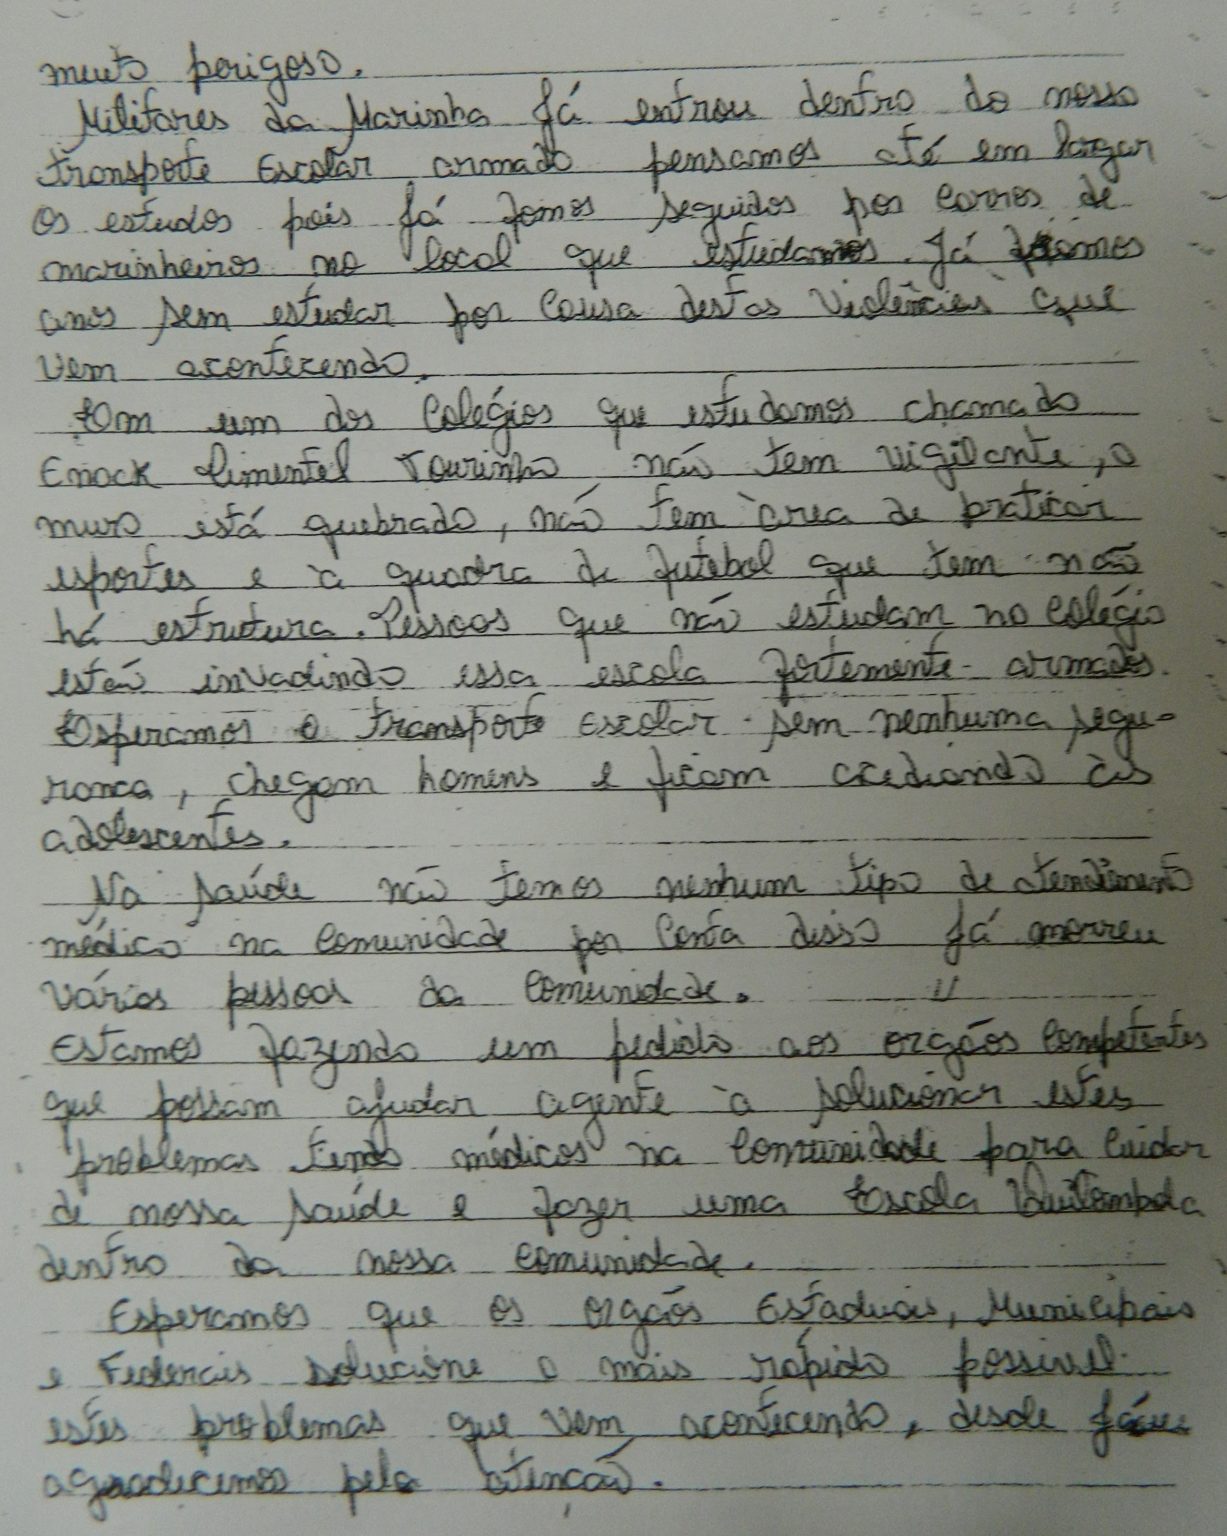 muito perigoso.
Militares da Marinha já entrou dentro do nosso
transporte Escolar armado pensamos até em largar
os estudos pois já fomos seguidos por carros de
marinheiros no local que estudamos. Já ficamos
anos sem estudar por causa destas violências que
vem acontecendo.
Em um dos Colégios que estudamos chamado
Enock Pimentel Tourinho não tem vigilante, o
muro está quebrado, não tem àrea de praticar
esportes e à quadra de futebol que tem não
há estrutura. Pessoas que não estudam no colégio
estão invadindo essa escola fortemente armados.
Esperamos o transporte Escolar sem nenhuma segu-
ranca, chegam homens e ficam acediando as
adolescentes.
Na saúde não temos nenhum tipo de atendimento
médico na comunidade por conta disso já morreu
várias pessoas da comunidade. 11
Estamos fazendo um pedido aos orgãos competentes
que possam ajudar agente à solucionar estes
problemas tendo médicos na comunidade para cuidar
de nossa saúde e fazer uma Escola Quilombola
dentro da nossa comunidade.
Esperamos que os orgãos Estaduais, Municipais
e Federais solucione o mais rápido possivel
estes problemas que vem acontecendo, desde já
agradecemos pela atenção.